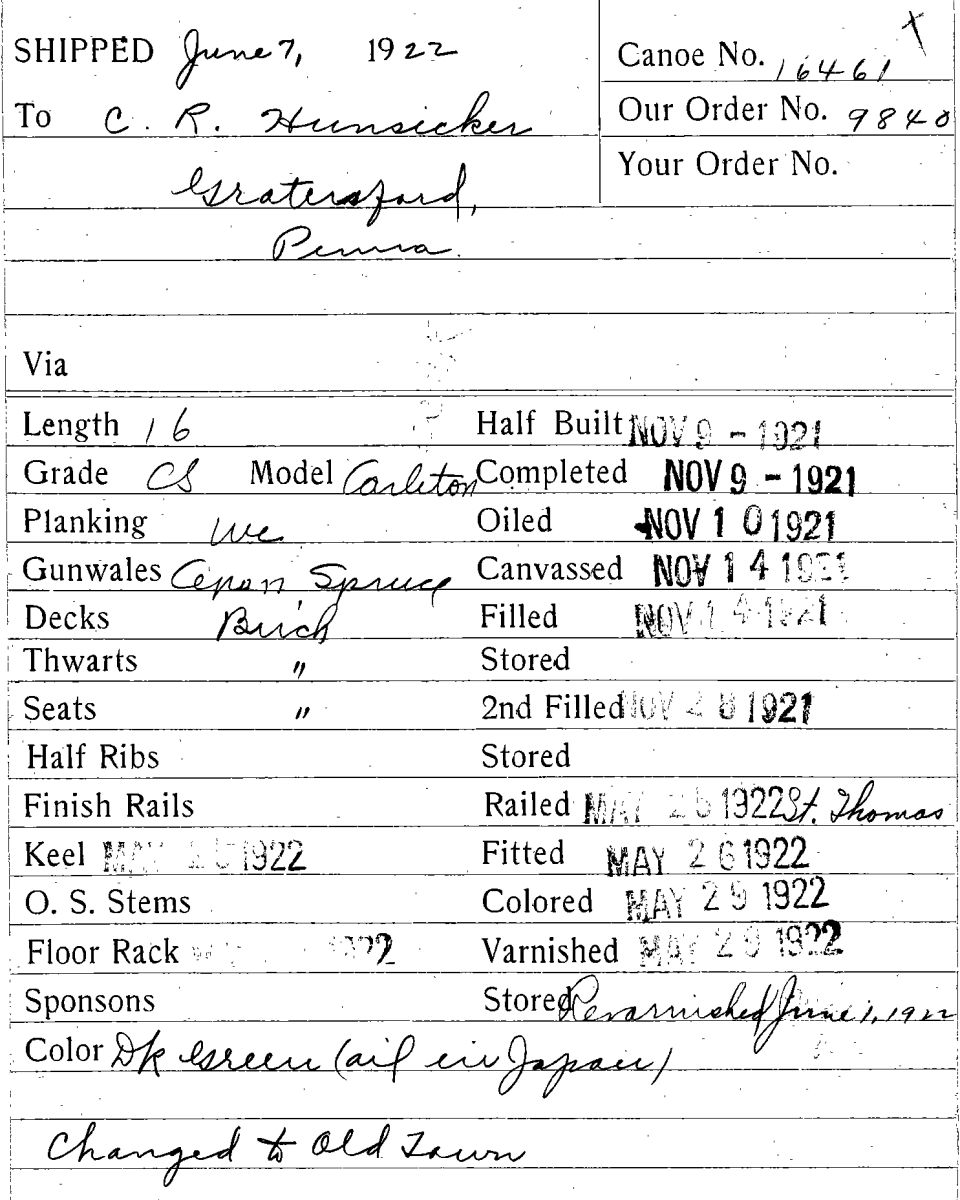 SHIPPED June 7, 1922
Canoe No. 16461 x
To C. R. Hunsicker
Our Order No. 9840
Gratersford,
Your Order No.
Penna.
Via
Length 16 Half Built NOV 9 - 1921
Grade CS Model Carleton Completed NOV 9 - 1921
Planking WC Oiled NOV 10 1921
Gunwales Open Spruce Canvassed NOV 14 1921
Decks Birch Filled NOV 14 1921
Thwarts " Stored
Seats " 2nd Filled NOV 28 1921
Half Ribs Stored
Finish Rails Railed MAY 25 1922 St. Thomas
Keel MAY 25 1922 Fitted MAY 26 1922
O. S. Stems Colored MAY 29 1922
Floor Rack 1922 Varnished MAY 29 1922
Sponsons Stored Revarnished June 1, 1922
Color Dk Green (oil in Japan)
Changed to Old Town